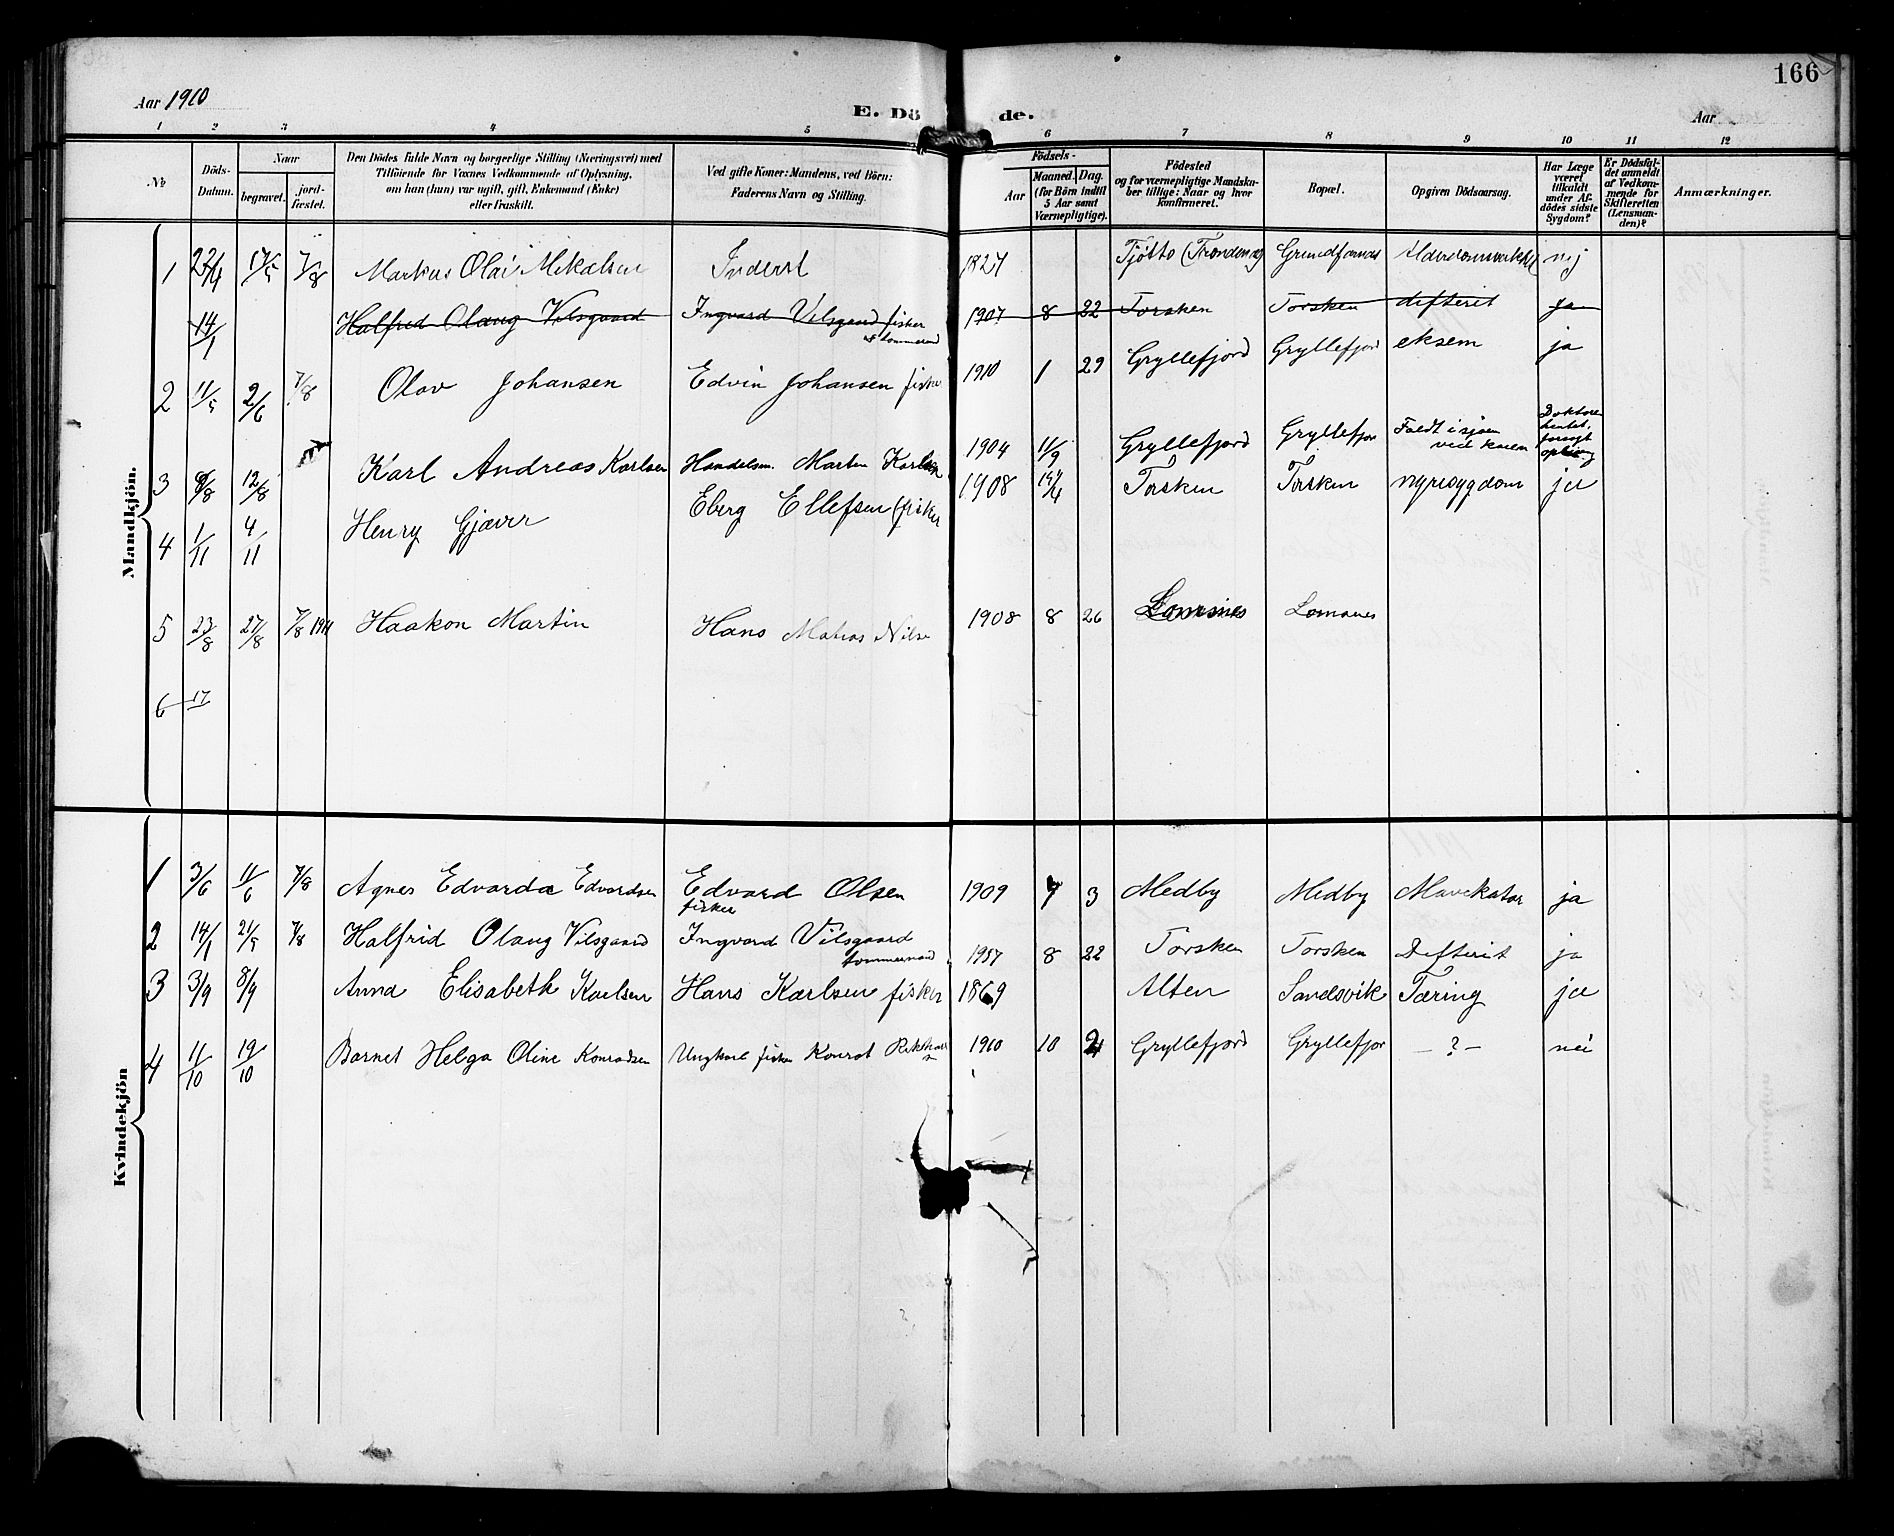 166
Aar 1910
E. Dö de.
Aar
1 2 3 4 5 6 7 8 9 10 11 12
No.
Döds-Datum.
Naar
begravet.
jord-fæstet.
Den Dödes fulde Navn og borgerlige Stilling (Næringsvei) med
Tilföiende for Voxnes Vedkommende af Oplysning,
om han (hun) var ugift, gift, Enkemand (Enke)
eller fraskilt.
Ved gifte Koner: Mandens, ved Börn:
Faderens Navn og Stilling.
Födsels-
Aar
Maaned. Dag.
(for Börn indtil
5 Aar samt
Værnepligtige).
Födested
og for værnepligtige Mandska-
ber tillige: Naar og hvor
konfirmeret.
Bopæl.
Opgiven Dödsaarsag.
Har Læge
været
tilkaldt
under Af-
dödes sidste
Sygdom?
Er Dödsfal-
det anmeldt
af Vedkom-
mende for
Skifteretten
(Lensman-
den)?
Anmærkninger.
Mandkjön.
1 23/4 17/5 7/8 Markus Olai Mikalsen Inderst 1827 Tjøtto (Trondenes) Grundfarnes nej
14/1 Halfrid Olaug Vilsgaard Ingvard Vilsgaard fisker 1907 8 22 Torsken Torsken difterit ja
2 11/5 2/6 7/8 Olav Johansen Edvin Johansen fisker 1910 1 29 Gryllefjord Gryllefjord eksem ja
3 8/8 12/8 Karl Andreas Karlsen Handelsm. Marten Karlsen 1904 11/9 Gryllefjord Gryllefjor Faldt i sjøen ved kaien Doktoren hentet, forsøgt
4 1/11 4/11 Henry Gjæver Eberg Ellefsen (fisker 1908 14/4 Torsken Torsken nyresygdom ja
5 23/8 27/8 7/8 1911 Haakon Martin Hans Matias Nilse 1908 8 26 Lomsnes
6 17
Kvindekjön
1 3/6 11/6 7/8 Agnes Edvarda Edvardsen Edvard Olsen fisker 1909 7 3 Medby Medby Mavekatar ja
2 14/1 21/5 7/8 Halfrid Olaug Vilsgaard Ingvard Vilsgaard tømmermand 1907 8 22 Torsken Torsken Difterit ja
3 3/9 8/9 Anna Elisabeth Karlsen Hans Karlsen fisker 1869 Alten Sandsvik Tæring ja
4 11/10 19/10 Barnet Helga Oline Konradsen Ungkarl fisker Konrat 1910 10 Gryllefjord Gryllefjor – ? – nei